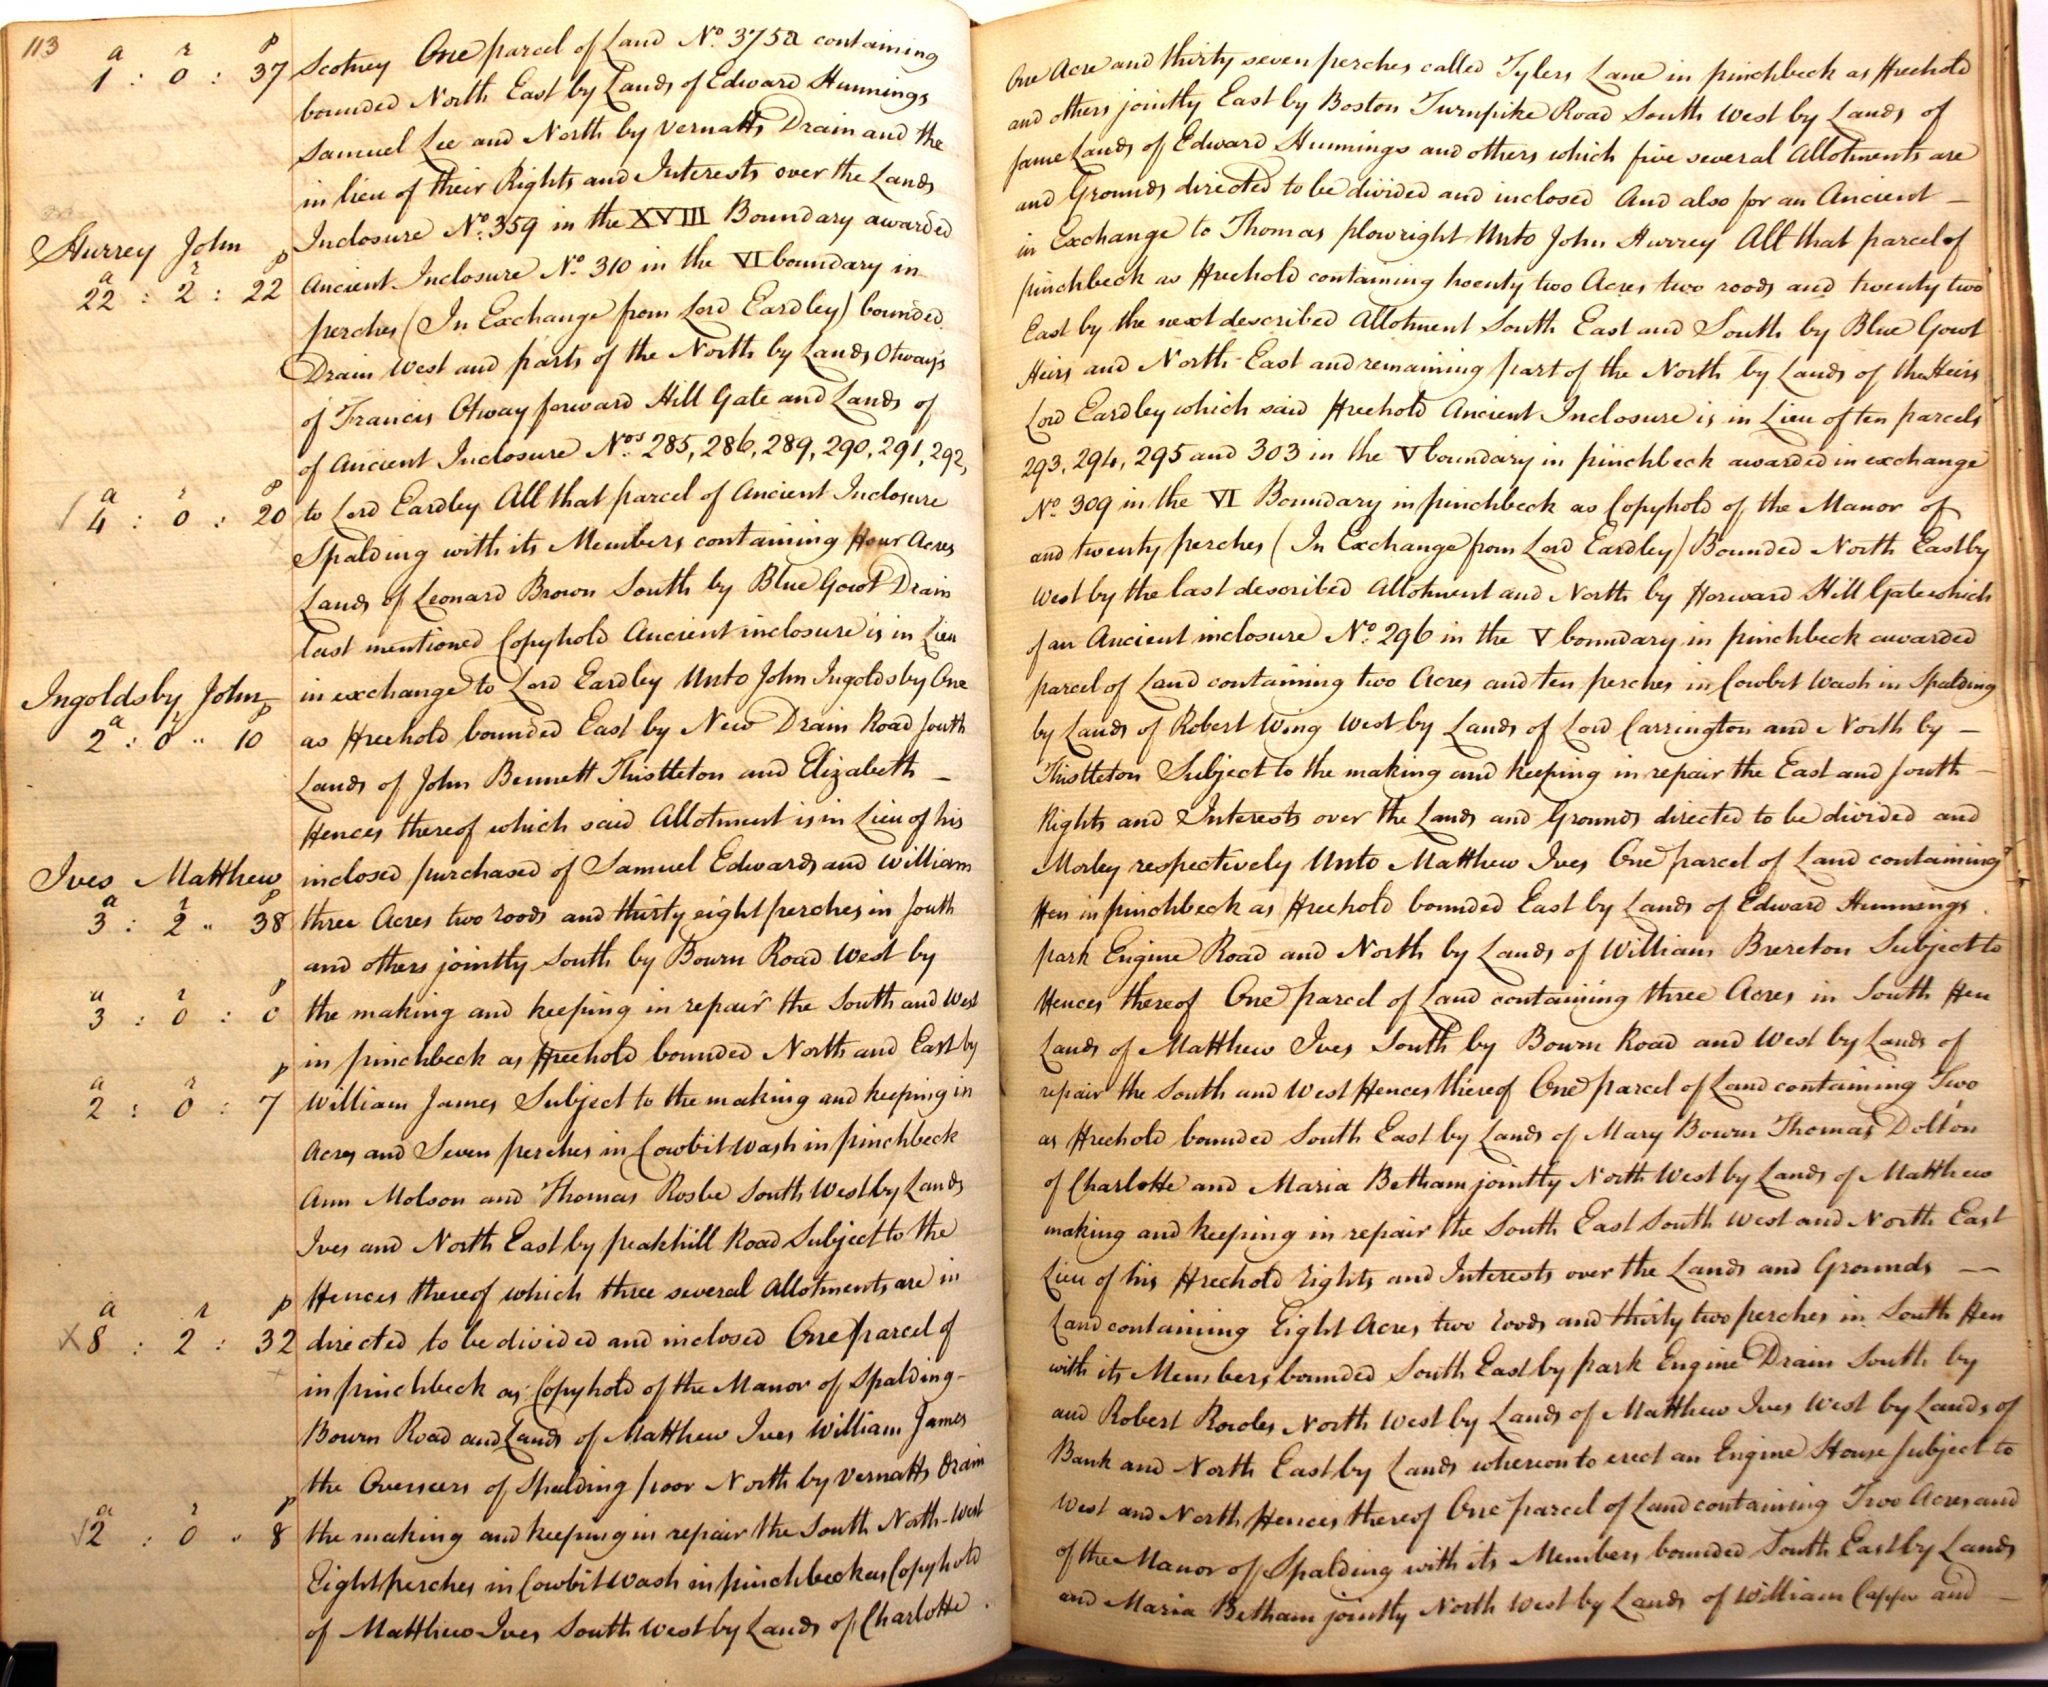 113
a r p
1 : 0 : 37
Scotney One parcel of Land No. 375a containing
One Acre and thirty seven perches called Tylers Lane in pinchbeck as Freehold
bounded North East by Lands of Edward Hunnings
and others jointly East by Boston Turnpike Road South West by Lands of
Samuel Lee and North by Vernatts Drain and the
same Lands of Edward Hunnings and others which five several Allotments are
in lieu of their Rights and Interests over the Lands
and Grounds directed to be divided and inclosed And also for an Ancient
Inclosure No. 359 in the XVIII Boundary awarded
in Exchange to Thomas plowright Unto John Hurrey All that parcel of
Hurrey John
a r p
22 : 2 : 22
Ancient Inclosure No. 310 in the VI boundary in
pinchbeck as Freehold containing twenty two Acres two roods and twenty two
perches (In Exchange from Lord Eardley) bounded
East by the next described Allotment South East and South by Blue Gowt
Drain West and parts of the North by Lands Otways
Heirs and North East and remaining part of the North by Lands of the Heirs
of Francis Otway forward Hill Gate and Lands of
Lord Eardley which said Freehold Ancient Inclosure is in Lieu of ten parcels
of Ancient Inclosure Nos. 285, 286, 289, 290, 291, 292,
293, 294, 295 and 303 in the V boundary in pinchbeck awarded in exchange
a r p
4 : 0 : 20
to Lord Eardley All that parcel of Ancient Inclosure
No. 309 in the VI Boundary in pinchbeck as Copyhold of the Manor of
Spalding with its Members containing Four Acres
and twenty perches (In Exchange from Lord Eardley) Bounded North East by
Lands of Leonard Brown South by Blue Gowt Drain
West by the last described Allotment and North by Forward Hill Gate which
last mentioned Copyhold Ancient inclosure is in Lieu
of an Ancient inclosure No. 296 in the V boundary in pinchbeck awarded
Ingoldsby John
a r p
2 : 0 " 10
in exchange to Lord Eardley Unto John Ingoldsby One
parcel of Land containing two Acres and ten perches in Cowbit Wash in Spalding
as Freehold bounded East by New Drain Road South
by Lands of Robert Wing West by Lands of Lord Carrington and North by
Lands of John Bennett Thistleton and Elizabeth
Thistleton Subject to the making and keeping in repair the East and South
Fences thereof which said Allotment is in Lieu of his
Rights and Interests over the Lands and Grounds directed to be divided and
inclosed purchased of Samuel Edwards and William
Morley respectively Unto Matthew Ives One parcel of Land containing
Ives Matthew
a r p
3 : 2 " 38
three Acres two roods and thirty eight perches in South
Fen in pinchbeck as Freehold bounded East by Lands of Edward Hunnings
and others jointly South by Bourn Road West by
park Engine Road and North by Lands of William Brereton Subject to
a r p
3 : 0 : 0
the making and keeping in repair the South and West
Fences thereof One parcel of Land containing three Acres in South Fen
in pinchbeck as Freehold bounded North and East by
Lands of Matthew Ives South by Bourn Road and West by Lands of
a r p
2 : 0 : 7
William James Subject to the making and keeping in
repair the South and West Fences thereof One parcel of Land containing Two
Acres and Seven perches in Cowbit Wash in pinchbeck
as Freehold bounded South East by Lands of Mary Bourn Thomas Dolton
Ann Molson and Thomas Rosbe South West by Lands
of Charlotte and Maria Betham jointly North West by Lands of Matthew
Ives and North East by peakhill Road Subject to the
making and keeping in repair the South East South West and North East
Fences thereof which three several Allotments are in
Lieu of his Freehold rights and Interests over the Lands and Grounds
a r p
8 : 2 : 32
directed to be divided and inclosed One parcel of
Land containing Eight Acres two roods and thirty two perches in South Fen
in pinchbeck as Copyhold of the Manor of Spalding
with its Members bounded South East by park Engine Drain South by
Bourn Road and Lands of Matthew Ives William James
and Robert Rowles North West by Lands of Matthew Ives West by Lands of
the Overseers of Spalding poor North by Vernatts Drain
Bank and North East by Lands whereon to erect an Engine House subject to
a r p
2 : 0 " 8
the making and keeping in repair the South North-West
West and North Fences thereof One parcel of Land containing Two Acres and
Eight perches in Cowbit Wash in pinchbeck as Copyhold
of the Manor of Spalding with its Members bounded South East by Lands
of Matthew Ives South West by Lands of Charlotte
and Maria Betham jointly North West by Lands of William Capps and